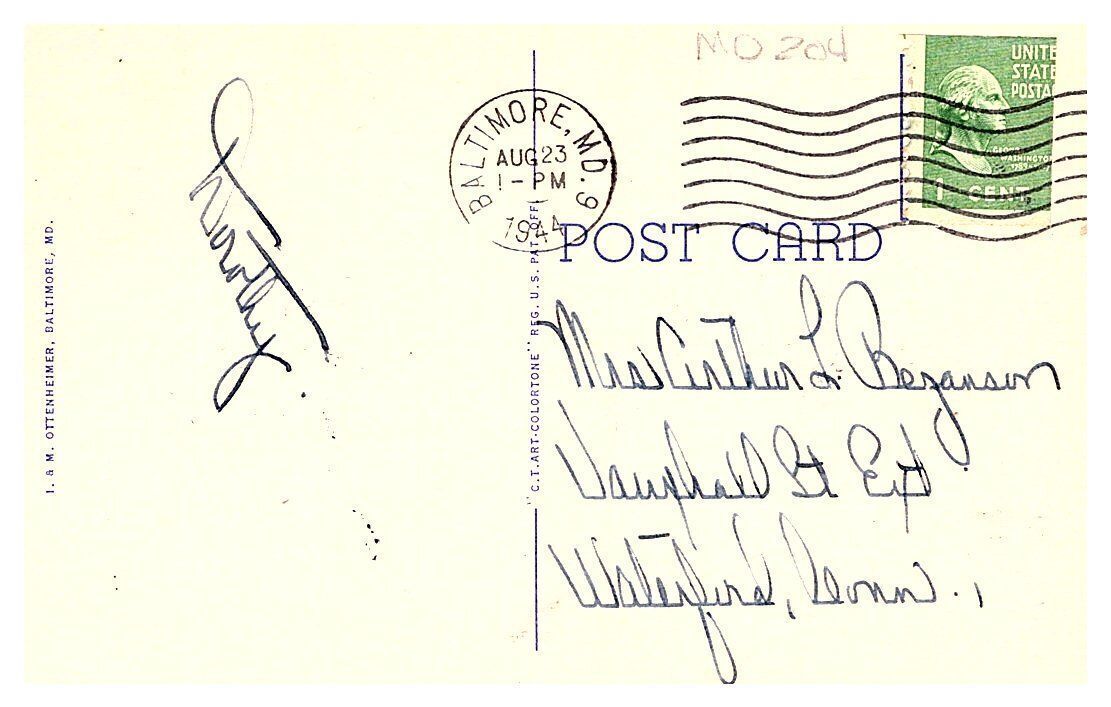 MD 204
UNITE
STATE
POSTA
GEORGE
WASHINGTON
1789-
1 CENT
BALTIMORE, MD. 9
AUG 23
1 - PM
1944
POST CARD
Dorothy
Mrs Arthur L. Bezanson
Vauxhall St Ext
Waterford, Conn.,
I. & M. OTTENHEIMER, BALTIMORE, MD.
"C.T. ART-COLORTONE" REG. U.S. PAT. OFF.